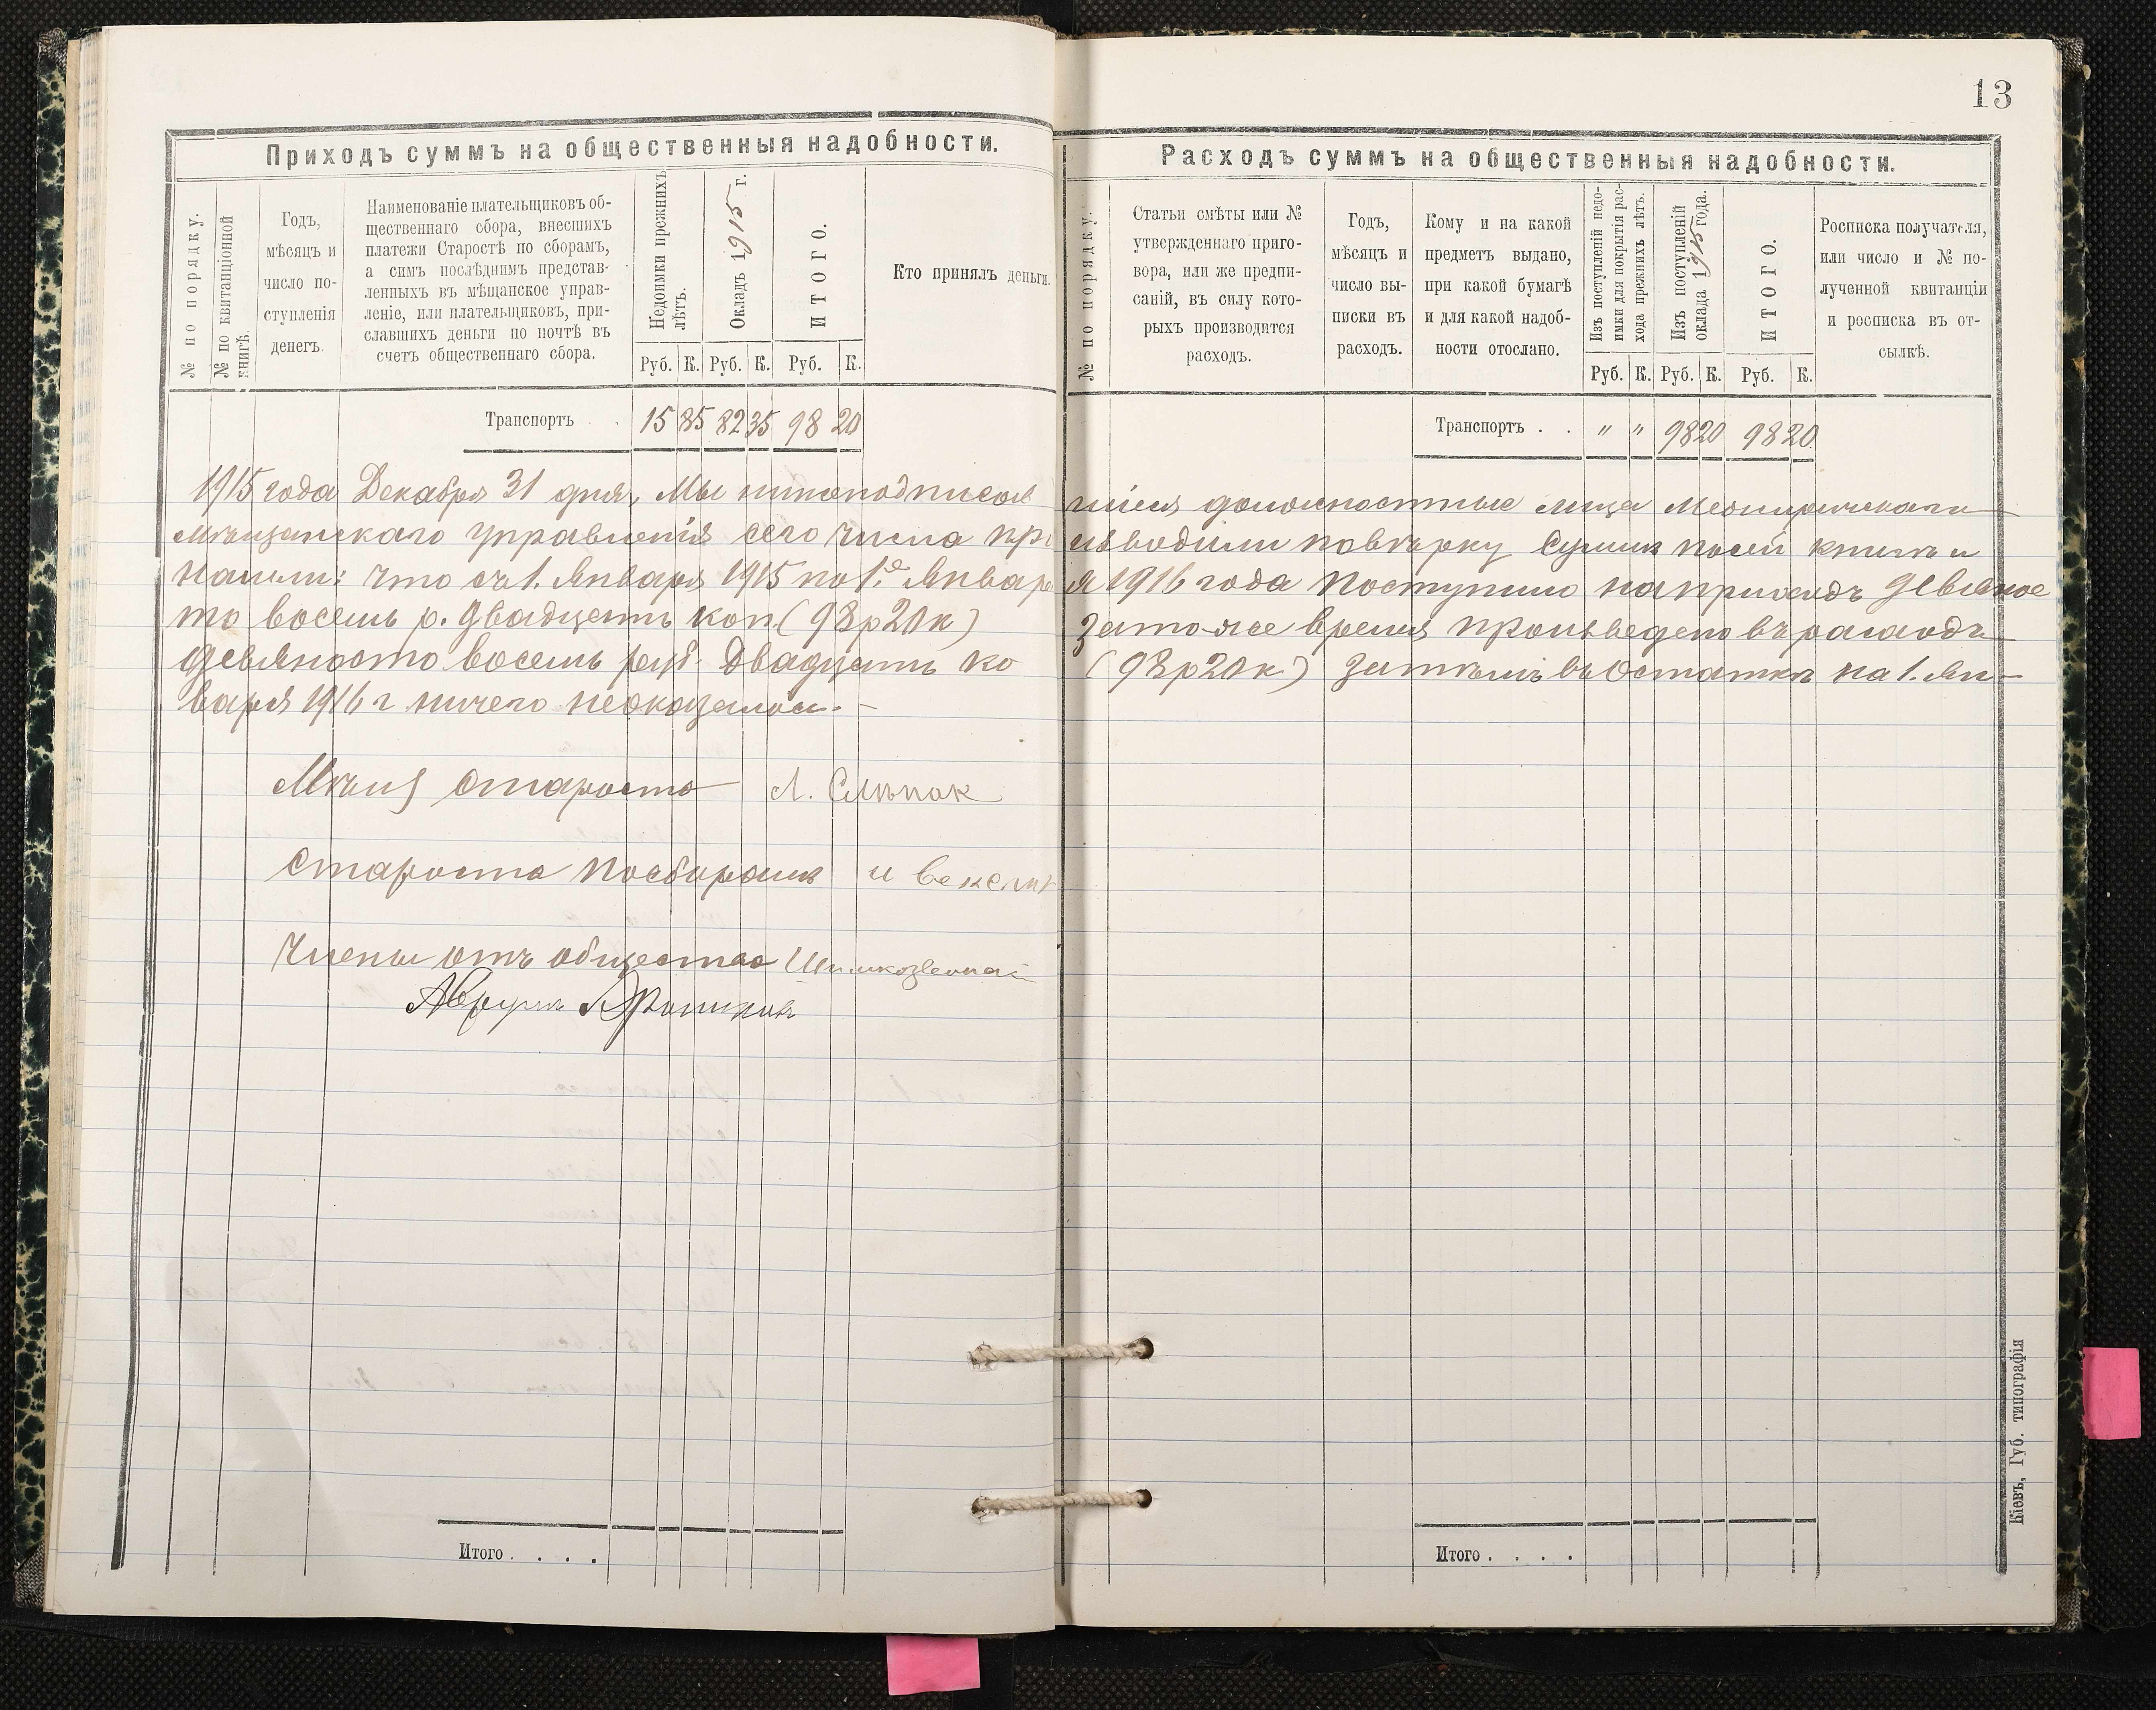 13
Приходъ суммъ на общественныя надобности.
№ по порядку.
№ по квитанціонной
книгѣ.
Годъ,
мѣсяцъ и
число по-
ступленія
денегъ.
Наименованіе плательщиковъ об-
щественнаго сбора, внесшихъ
платежи Старостѣ по сборамъ,
а симъ послѣднимъ представ-
ленныхъ въ мѣщанское управ-
леніе, или плательщиковъ, при-
славшихъ деньги по почтѣ въ
счетъ общественнаго сбора.
Недоимки прежнихъ
лѣтъ.
Окладъ 1915 г.
ИТОГО.
Кто принялъ деньги.
Руб. К. Руб. К. Руб. К.
Транспортъ . . 15 85 82 35 98 20
Расходъ суммъ на общественныя надобности.
№ по порядку.
Статьи смѣты или №
утвержденнаго приго-
вора, или же предпи-
саній, въ силу кото-
рыхъ производится
расходъ.
Годъ,
мѣсяцъ и
число вы-
писки въ
расходъ.
Кому и на какой
предметъ выдано,
при какой бумагѣ
и для какой надоб-
ности отослано.
Изъ поступленій недо-
имки для покрытія рас-
хода прежнихъ лѣтъ.
Изъ поступленій
оклада 1915 года.
ИТОГО.
Росписка получателя,
или число и № по-
лученной квитанціи
и росписка въ от-
сылкѣ.
Руб. К. Руб. К. Руб. К.
Транспортъ . . " " 98 20 98 20
1915 года Декабря 31 дня, Мы нижеподписав
шіеся должностные лица
мѣщанскаго управленія сего числа про
изводили повѣрку суммъ посей книгѣ и
нашли: что съ 1. Января 1915 по 1е Январ
я 1916 года поступило на приходъ девянос
то восемь р. двадцать коп. (98р20к)
за то-же время произведено въ расходъ
девяносто восемь руб. двадцать ко
(98р20к) Затѣмъ въ остаткѣ на 1. Ян-
варя 1916 г ничего неоказалось.-
Мѣщ староста Л. Слѣпак
Староста посборамъ
Члены отъ общества
Итого . . . .
Итого . . . .
Кіевъ, Губ. типографія